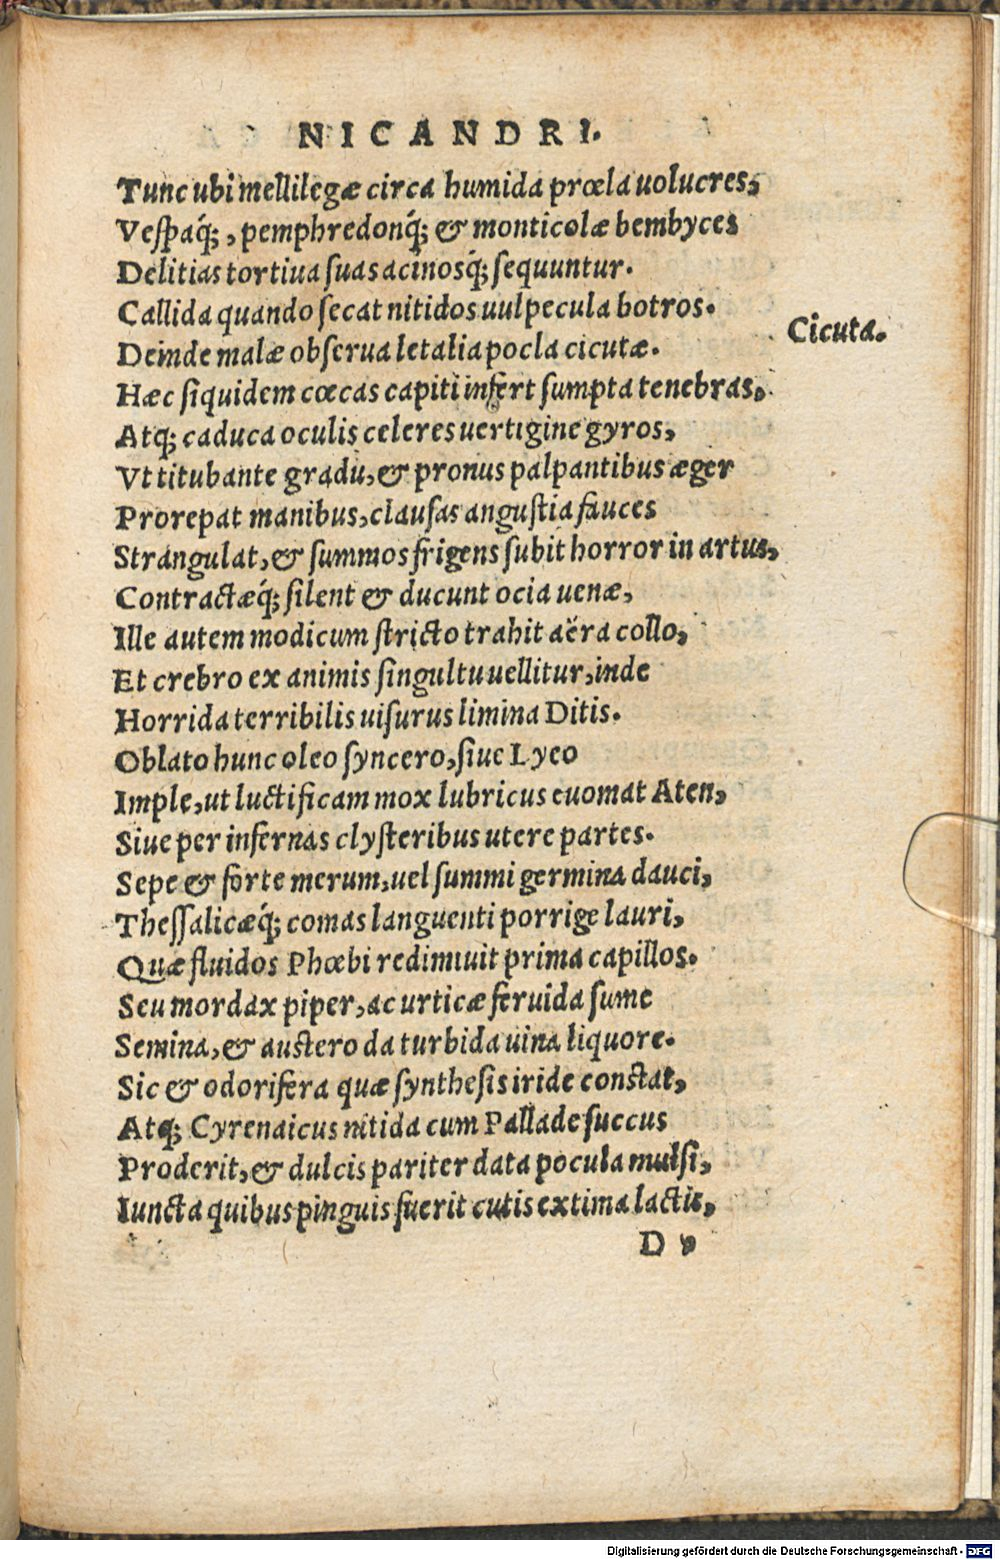 NICANDRI.
Tunc ubi mellilegæ circa humida prœla uolucres,
Vespaq́;, pemphredonq́; & monticolæ bembyces
Delitias tortiua suas acinosq́; sequuntur.
Callida quando secat nitidos uulpecula botros.
Deinde malæ obserua letalia pocla cicutæ.
Cicuta.
Hæc siquidem cœcas capiti infert sumpta tenebras,
Atq; caduca oculis celeres uertigine gyros,
Vt titubante gradu, & pronus palpantibus æger
Prorepat manibus, clausas angustia fauces
Strangulat, & summos frigens subit horror in artus,
Contractæq́; silent & ducunt ocia uenæ,
Ille autem modicum stricto trahit aëra collo,
Et crebro ex animis singultu uellitur, inde
Horrida terribilis uisurus limina Ditis.
Oblato hunc oleo syncero, siue Lyeo
Imple, ut luctificam mox lubricus euomat Aten,
Siue per infernas clysteribus utere partes.
Sepe & forte merum, uel summi germina dauci,
Thessalicæq́; comas languenti porrige lauri,
Quæ fluidos Phœbi redimiuit prima capillos.
Seu mordax piper, ac urticæ feruida sume
Semina, & austero da turbida uina liquore.
Sic & odorifera quæ synthesis iride constat,
Atq; Cyrenaicus nitida cum Pallade succus
Proderit, & dulcis pariter data pocula mulsi,
Iuncta quibus pinguis fuerit cutis extima lactis,
D v
Digitalisierung gefördert durch die Deutsche Forschungsgemeinschaft - DFG